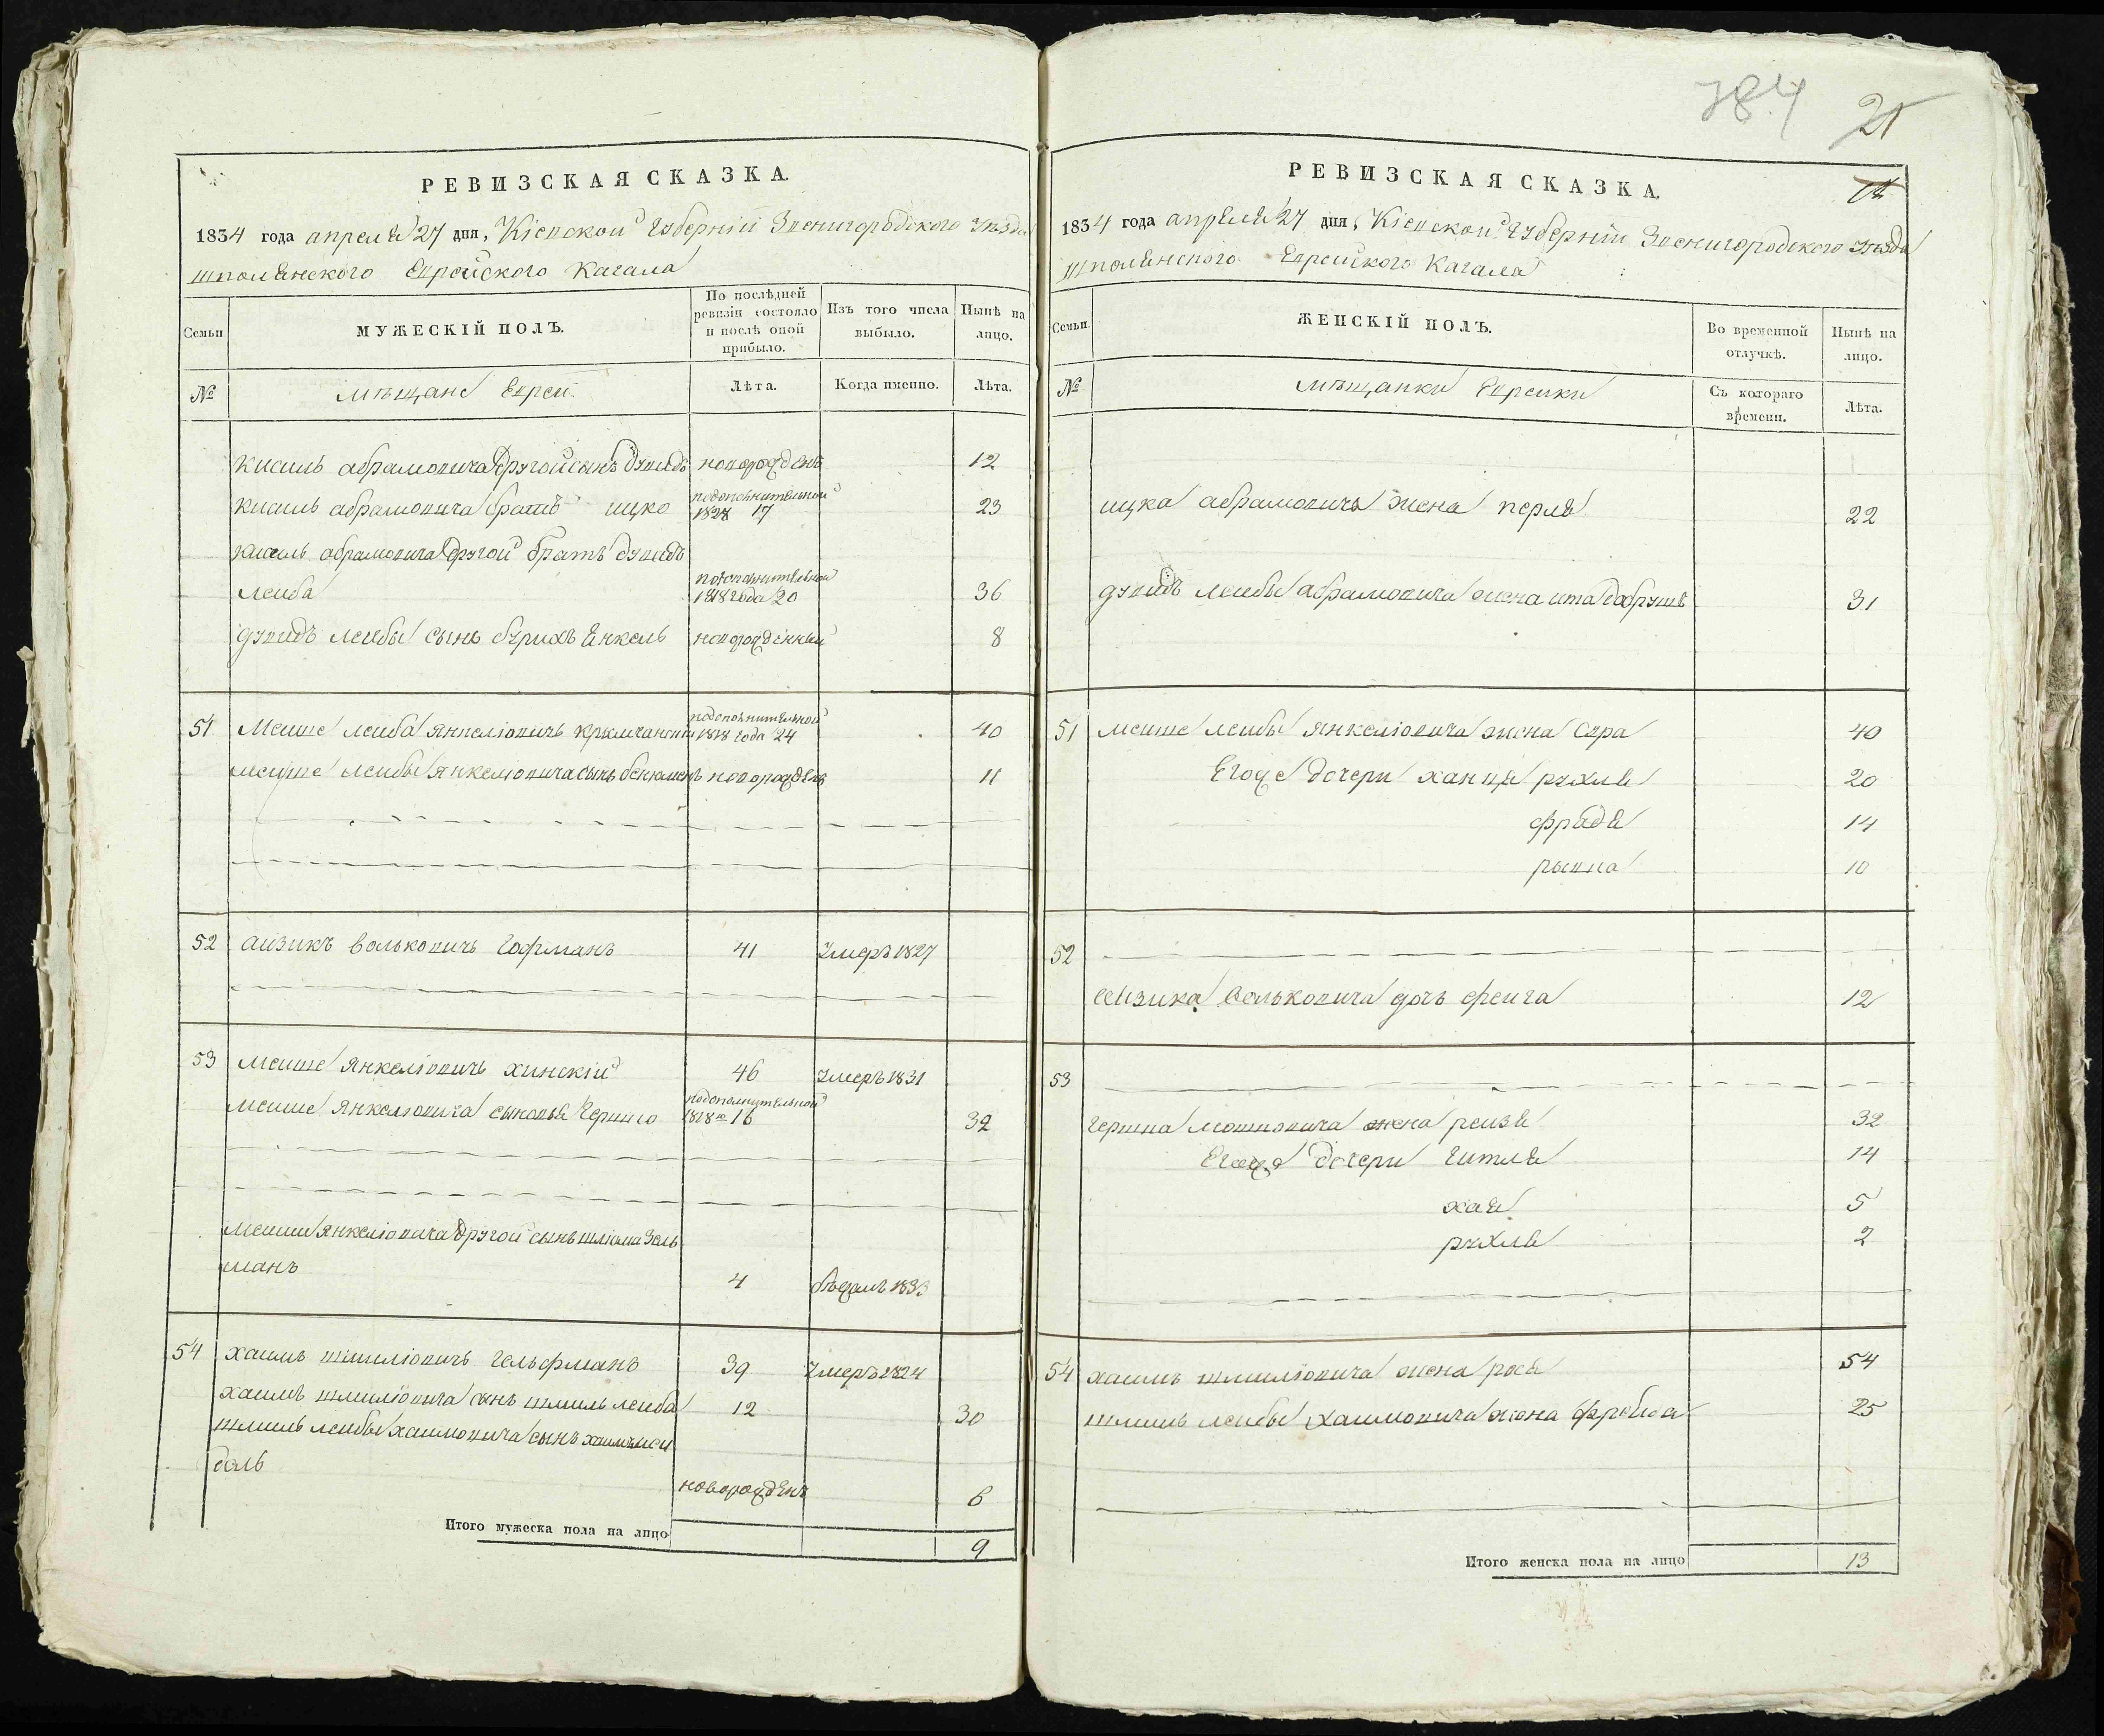 784 21
РЕВИЗСКАЯ СКАЗКА.
1834 года апреля 27 дня, Кіевской Губерніи Звенигородского Уѣзда
шполянского Еврейского Кагала
Семьи
МУЖЕСКІЙ ПОЛЪ.
По послѣдней ревизіи состояло и послѣ оной прибыло.
Изъ того числа выбыло.
Нынѣ на лицо.
№
мѣщане Евреи
Лѣта.
Когда именно.
Лѣта.
кисиль абрамовича другой сынъ дувидъ новорожденъ 12
кисиль абрамовича братъ ицко подополнительной 1828 17 23
кисель абрамовича другой братъ дувидъ
лейба подополнительной 1818 года 20 36
дувидъ лейбы сынъ бурихъ Енкель новорожденный 8
51 Мейше лейба янкеліовичь крымчанский подополнительной 1818 года 24 40
мейше лейбы янкеліовича сынъ бенюменъ новорожденъ 11
52 айзикъ волькович Гофманъ 41 Умеръ 1827
53 Мейше янкеліовичь хинскій 46 Умеръ 1831
мейше янкеліовича сыновья Гершко подополнительной 1818 го 16 32
мейши янкеліовича другой сынъ шліома Зель
манъ 4 бѣжалъ 1833
54 хаимъ шмиліовичь гельфманъ 39 Умеръ 1824
хаимъ шмиліовича сынъ шмиль лейба 12 30
шмиль лейбы хаимовича сынъ хаимъ мен
дель новорожденъ 6
Итого мужеска пола на лицо 9
РЕВИЗСКАЯ СКАЗКА.
1834 года апреля 27 дня, Кіевской Губерніи Звенигородского Уѣзда
шполянского Еврейского Кагала
Семьи.
ЖЕНСКІЙ ПОЛЪ.
Во временной отлучкѣ.
Нынѣ на лицо.
№
мѣщанки Еврейки
Съ котораго времени.
Лѣта.
ицка абрамовича жена перля 22
дувидъ лейбы абрамовича жена ита добрушъ 31
51 мейше лейбы янкеліовича жена сура 40
Егоже дочери ханця рухля 20
фрадя 14
рывка 10
52
айзика Вольковича дочь фейга 12
53
гершка мошковича жена рейзя 32
Егоже дочери Гитля 14
хая 5
рухля 2
54 хаимъ шмиліовича жена рося 54
шмиль лейбы хаимовича жена фрейда 25
Итого женска пола на лицо 13